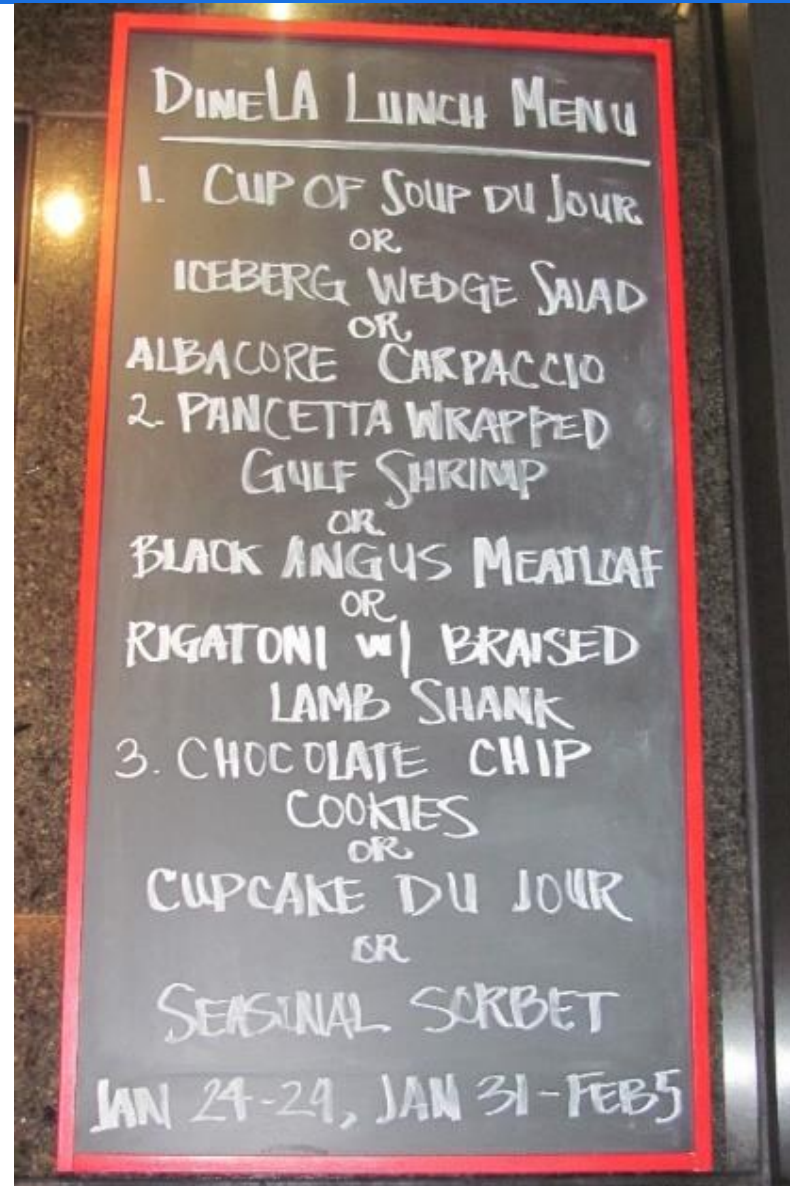 DINELA LUNCH MENU
1. CUP OF SOUP DU JOUR
OR
ICEBERG WEDGE SALAD
OR
ALBACORE CARPACCIO
2. PANCETTA WRAPPED
GULF SHRIMP
OR
BLACK ANGUS MEATLOAF
OR
RIGATONI W/ BRAISED
LAMB SHANK
3. CHOCOLATE CHIP
COOKIES
OR
CUPCAKE DU JOUR
OR
SEASINAL SORBET
JAN 24-29, JAN 31-FEB5